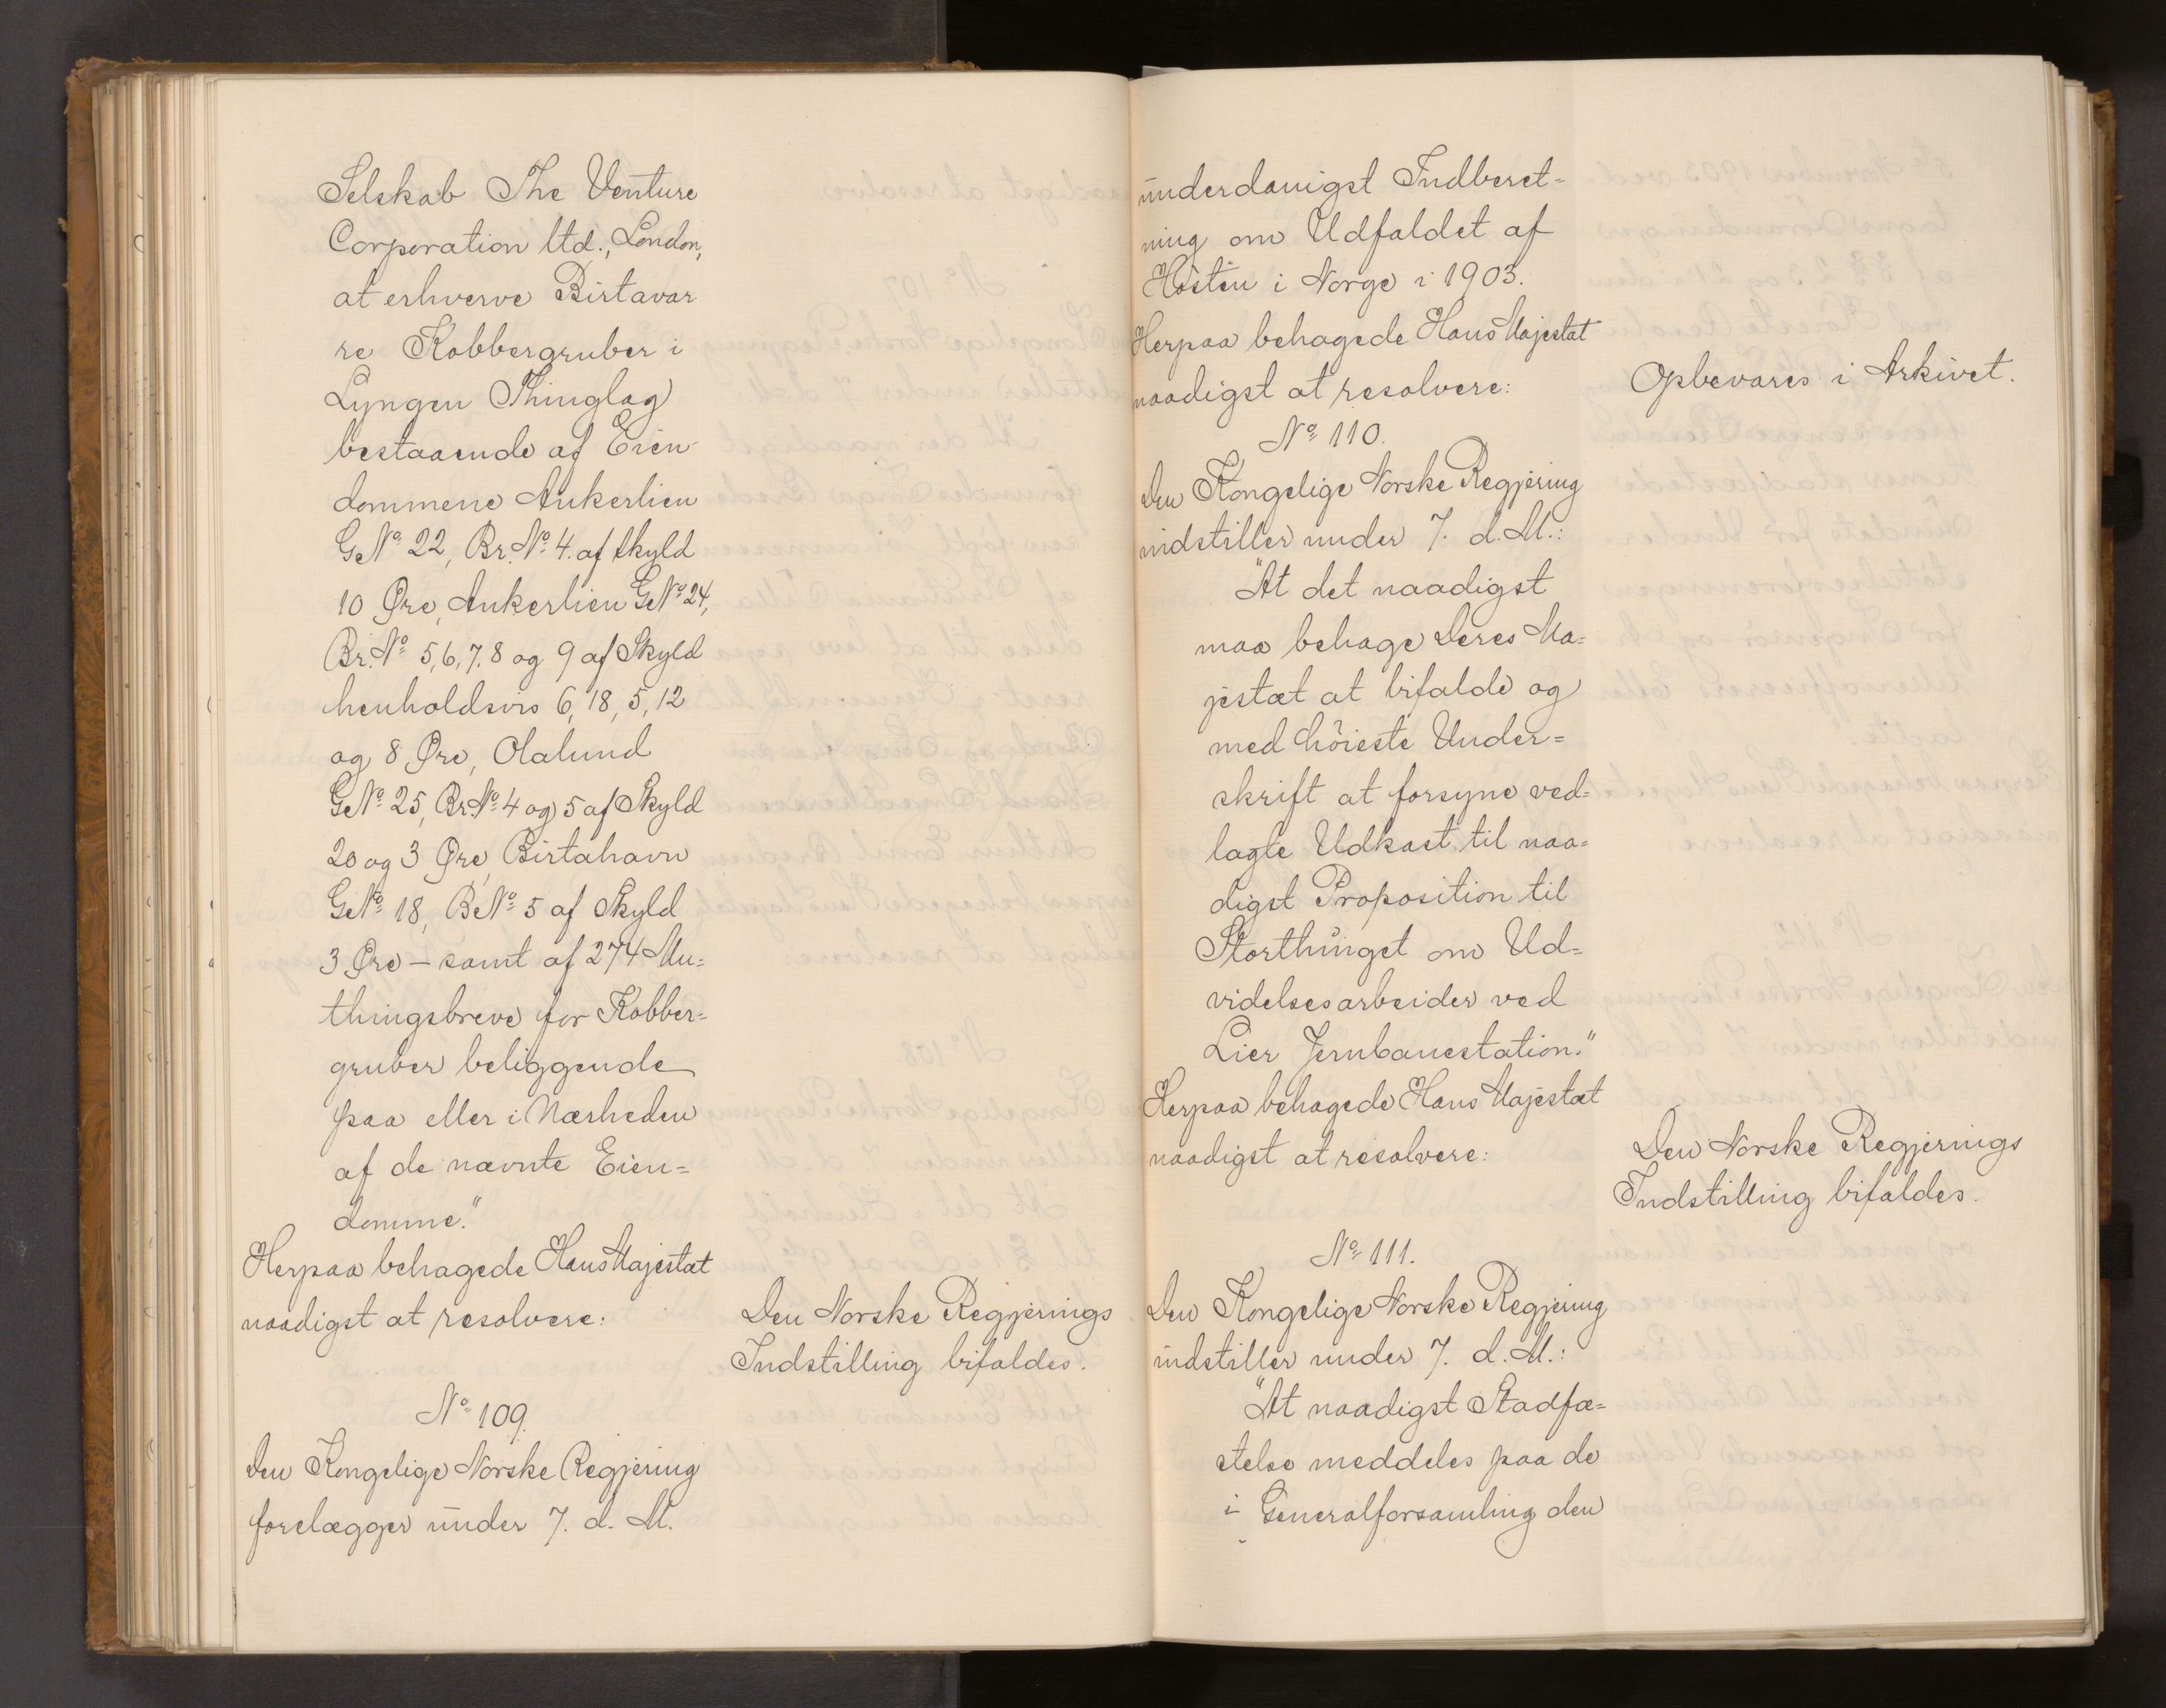 Selskab The Venture
Corporation ltd., London,
at erhverve Birtavar
re Kobbergruber i
Lyngen Thinglag
bestaaende af Eien
dommene Ankerlien
G.No. 22, Br.No. 4. af Skyld
10 Øre, Ankerlien G.No. 24,
Br.No. 5,6,7,8 og 9 af Skyld
henholdsvis 6, 18, 5, 12
og 8 Øre, Olalund
G.No. 25, Br.No. 4 og 5 af Skyld
20 og 3 Øre, Birtahavn
G.No. 18, B.No. 5 af Skyld
3 Øre – samt af 274 Mu=
thingsbreve for Kobber=
gruber beliggende
paa eller i Nærheden
af de nævnte Eien=
domme."
Herpaa behagede Hans Majestæt
naadigst at resolvere:
Den Norske Regjerings
Indstilling bifaldes.
No. 109.
Den Kongelige Norske Regjering
forelægger under 7. d. M.
underdanigst Indberet=
ning om Udfaldet af
Høsten i Norge i 1903.
Herpaa behagede Hans Majestæt
naadigst at resolvere:
Opbevares i Arkivet.
No. 110.
Den Kongelige Norske Regjering
indstiller under 7. d. M.:
"At det naadigst
maa behage Deres Ma=
jestæt at bifalde og
med høieste Under=
skrift at forsyne ved=
lagte Udkast til naa=
digst Proposition til
Storthinget om Ud=
videlsesarbeider ved
Lier Jernbanestation."
Herpaa behagede Hans Majestæt
naadigst at resolvere:
Den Norske Regjerings
Indstilling bifaldes.
No. 111.
Den Kongelige Norske Regjering
indstiller under 7. d. M.:
"At naadigst Stadfæ=
stelse meddeles paa de
i Generalforsamling den